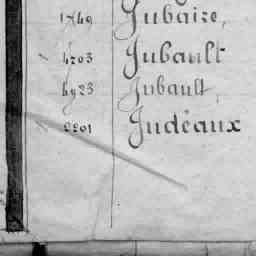 1749 Jubaire,
4703 Jubault
4923 Jubault,
2201 Judéaux